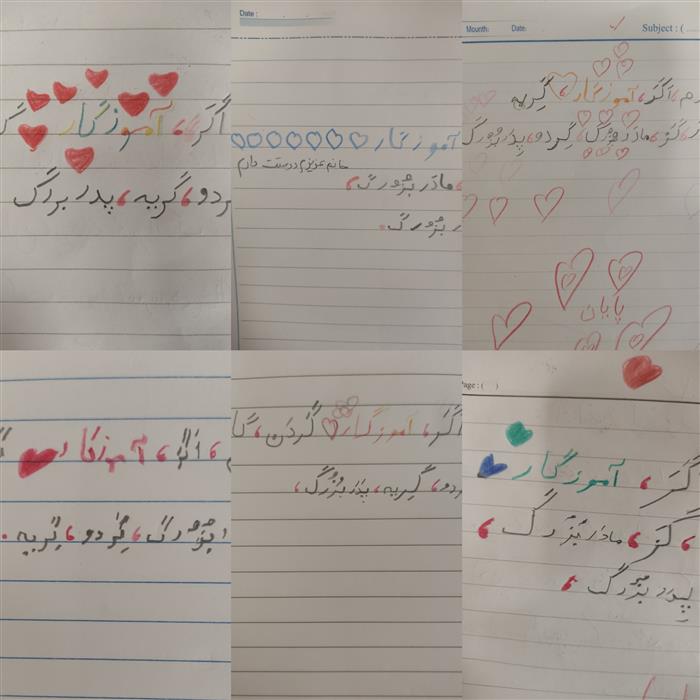 اگَر، آموزگار
ردو، گربه، پدر بزرگ
Date :
آموزگار
خانم عزیزم دوستت دارم
، مادَر بُزُرگ،
بُزُرگ.
Mounth:
Date:
Subject : (
م، اَگَر، آموزگار، گِریه
گَز، مادَر بُزُرگ، گِردو، پِدَر بُزُرگ
پایان
، اَگَر، آموزگار
بُزُرگ، گِردو، گِریه.
اَگَر، آموزگار، گَردَن، گا
ردو، گِریه، پِدَر بُزُرگ،
age : ( )
گَر، آموزگار
، گَز، مادَر بُزُرگ،
پِدَر بُزُرگ،